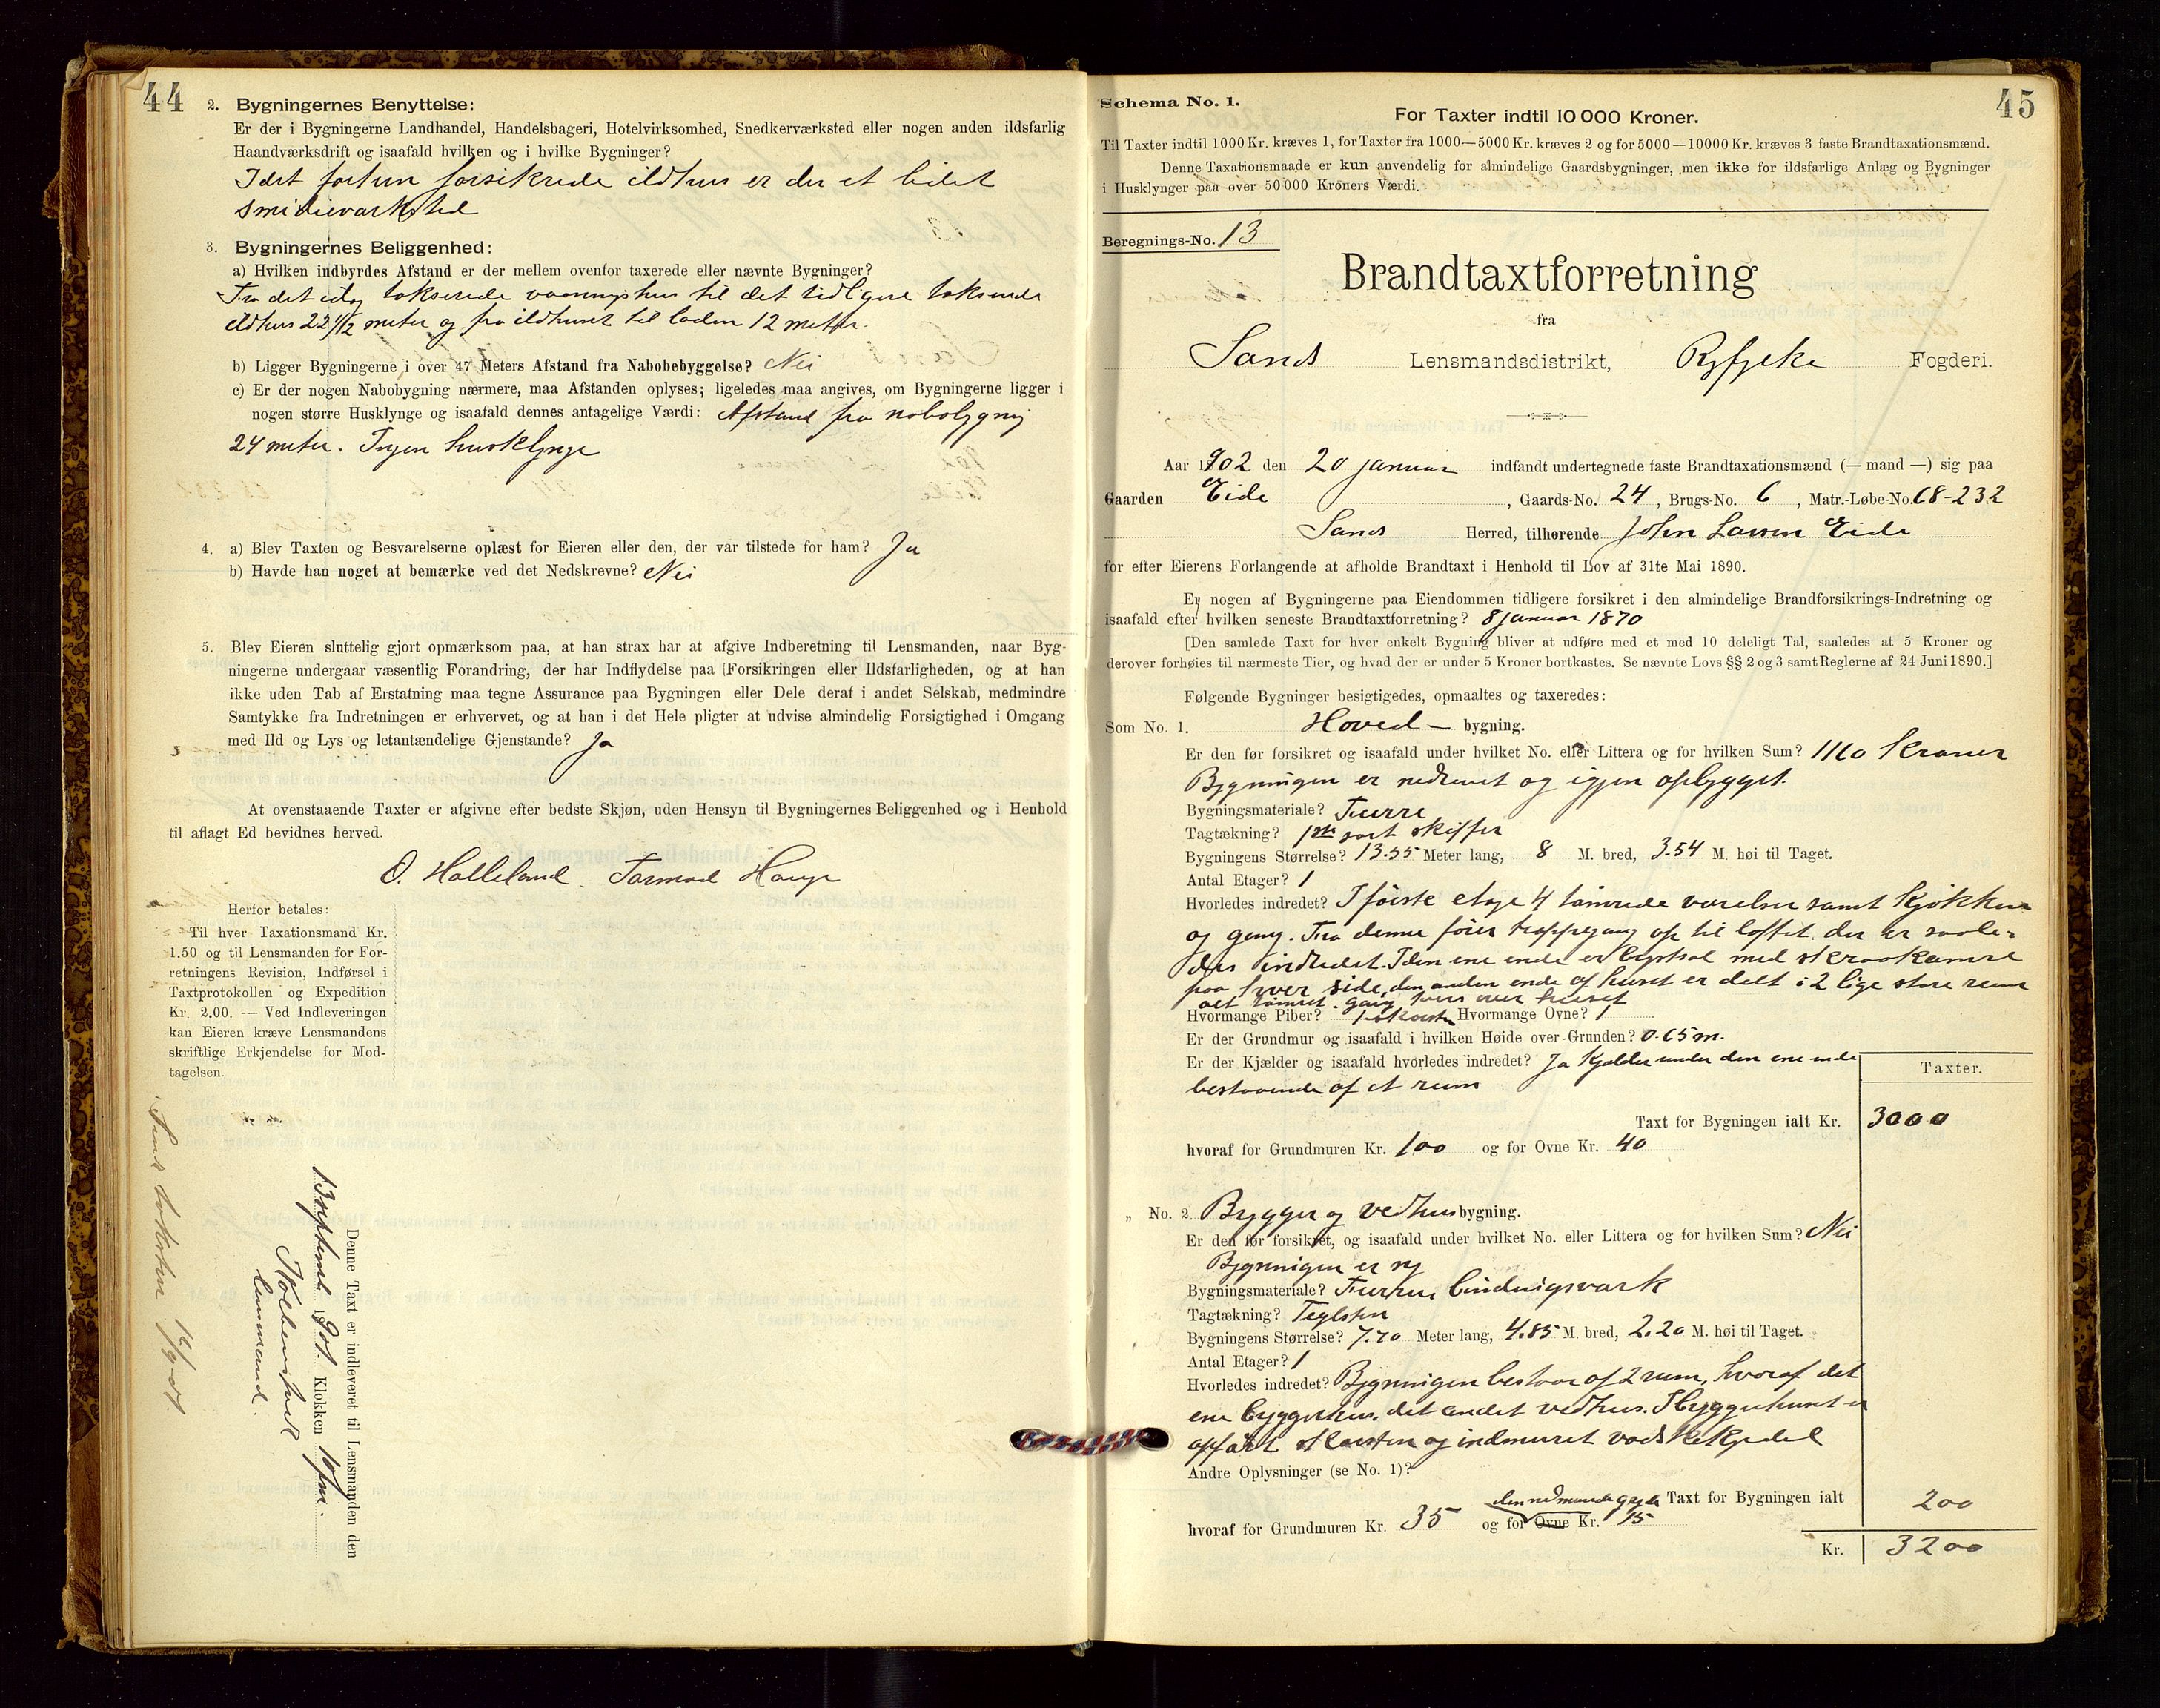 44
2. Bygningernes Benyttelse:
Er der i Bygningerne Landhandel, Handelsbageri, Hotelvirksomhed, Snedkerværksted eller nogen anden ildsfarlig
Haandværksdrift og isaafald hvilken og i hvilke Bygninger?
I det forhen forsikrede ildhus er der et lidet
smidieværksted
3. Bygningernes Beliggenhed:
a) Hvilken indbyrdes Afstand er der mellem ovenfor taxerede eller nævnte Bygninger?
Fra det idag takserede vaaningshus til det tidligere takserede
ildhus 22 1/2 meter og fra ildhuset til laden 12 meter.
b) Ligger Bygningerne i over 47 Meters Afstand fra Nabobebyggelse? Nei
c) Er der nogen Nabobygning nærmere, maa Afstanden oplyses; ligeledes maa angives, om Bygningerne ligger i
nogen større Husklynge og isaafald dennes antagelige Værdi: Afstand fra nabobygning
24 meter. Ingen husklynge
4. a) Blev Taxten og Besvarelserne oplæst for Eieren eller den, der var tilstede for ham? Ja
b) Havde han noget at bemærke ved det Nedskrevne? Nei
5. Blev Eieren sluttelig gjort opmærksom paa, at han strax har at afgive Indberetning til Lensmanden, naar Byg-
ningerne undergaar væsentlig Forandring, der har Indflydelse paa Forsikringen eller Ildsfarligheden, og at han
ikke uden Tab af Erstatning maa tegne Assurance paa Bygningen eller Dele deraf i andet Selskab, medmindre
Samtykke fra Indretningen er erhvervet, og at han i det Hele pligter at udvise almindelig Forsigtighed i Omgang
med Ild og Lys og letantændelige Gjenstande? Ja
At ovenstaaende Taxter er afgivne efter bedste Skjøn, uden Hensyn til Bygningernes Beliggenhed og i Henhold
til aflagt Ed bevidnes herved.
O. Halleland. Tormod Hauge
Herfor betales:
Til hver Taxationsmand Kr.
1.50 og til Lensmanden for For-
retningens Revision, Indførsel i
Taxtprotokollen og Expedition
Kr. 2.00. — Ved Indleveringen
kan Eieren kræve Lensmandens
skriftlige Erkjendelse for Mod-
tagelsen.
Denne Taxt er indleveret til Lensmanden den
13 septemb 1901. Klokken 10 fm.
lensmand.
Schema No. 1.
45
For Taxter indtil 10 000 Kroner.
Til Taxter indtil 1000 Kr. kræves 1, for Taxter fra 1000—5000 Kr. kræves 2 og for 5000—10000 Kr. kræves 3 faste Brandtaxationsmænd.
Denne Taxationsmaade er kun anvendelig for almindelige Gaardsbygninger, men ikke for ildsfarlige Anlæg og Bygninger
i Husklynger paa over 50 000 Kroners Værdi.
Beregnings-No. 13
Brandtaxtforretning
fra
Sands Lensmandsdistrikt, Ryfylke Fogderi.
Aar 1902 den 20 januar indfandt undertegnede faste Brandtaxationsmænd (— mand —) sig paa
Gaarden Eide, Gaards-No. 24, Brugs-No. 6, Matr.-Løbe-No. 68-232
Sands Herred, tilhørende John Larsen Eide
for efter Eierens Forlangende at afholde Brandtaxt i Henhold til Lov af 31te Mai 1890.
Er nogen af Bygningerne paa Eiendommen tidligere forsikret i den almindelige Brandforsikrings-Indretning og
isaafald efter hvilken seneste Brandtaxtforretning? 8 januar 1870
[Den samlede Taxt for hver enkelt Bygning bliver at udføre med et med 10 deleligt Tal, saaledes at 5 Kroner og
derover forhøies til nærmeste Tier, og hvad der er under 5 Kroner bortkastes. Se nævnte Lovs §§ 2 og 3 samt Reglerne af 24 Juni 1890.]
Følgende Bygninger besigtigedes, opmaaltes og taxeredes:
Som No. 1. Hoved — bygning.
Er den før forsikret og isaafald under hvilket No. eller Littera og for hvilken Sum? 1160 kroner
Bygningen er nedrevet og igjen opbygget.
Bygningsmateriale? Furre
Tagtækning? 1ste sort skiffer
Bygningens Størrelse? 13.55 Meter lang, 8 M. bred, 3.54 M. høi til Taget.
Antal Etager? 1
Hvorledes indredet? I første etage 4 tømrede værelser samt kjøkken
og gang. Fra denne fører trappegang op til loftet. der er saale-
des indredet. I den ene ende er lystsal med skraakamre
paa hver side, den anden ende af huset er delt i 2 lige store rum
alt tømret. gang tvers over huset
Hvormange Piber? 1 skorsten Hvormange Ovne? 1
Er der Grundmur og isaafald i hvilken Høide over Grunden? 0.65 m.
Er der Kjælder og isaafald hvorledes indredet? Ja Kjelder under den ene ende
bestaaende af et rum
Taxter.
Taxt for Bygningen ialt Kr. 3000
hvoraf for Grundmuren Kr. 100 og for Ovne Kr. 40
„ No. 2. Brygger og vedhus bygning.
Er den før forsikret, og isaafald under hvilket No. eller Littera og for hvilken Sum? Nei
Bygningen er ny
Bygningsmateriale? Furru, bindingsværk
Tagtækning? Teglsten
Bygningens Størrelse? 7.70 Meter lang, 4.85 M. bred, 2.20 M. høi til Taget.
Antal Etager? 1
Hvorledes indredet? Bygningen bestaar af 2 rum, hvoraf det
ene bryggerhus, det andet vedhus. I bryggerhuset er
opført skorsten og indmuret vadskekjedel
Andre Oplysninger (se No. 1)?
Taxt for Bygningen ialt 200
hvoraf for Grundmuren Kr. 35 og for Ovne den indmurede gryde Kr. 15
Kr. 3200